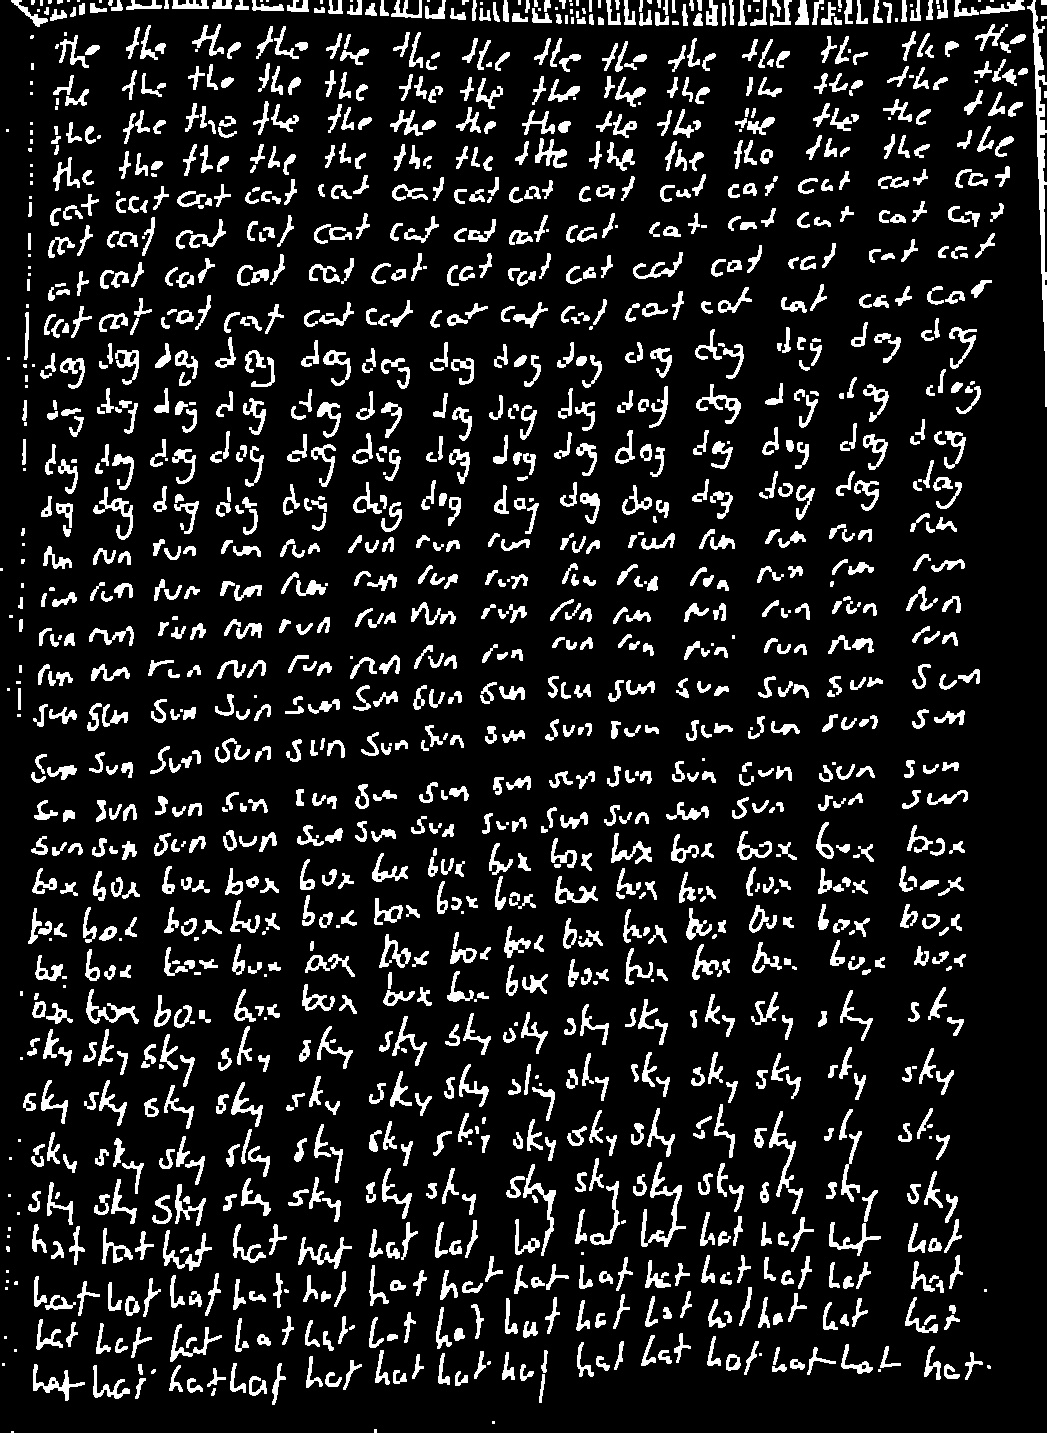 the the the the the the the the the the the the the the
the the the the the the the the the the the the the the
the the the the the the the the the the the the the the
the the the the the the the the the the the the the the
cat cat cat cat cat cat cat cat cat cat cat cat cat cat
cat cat cat cat cat cat cat cat cat cat cat cat cat cat
cat cat cat cat cat cat cat cat cat cat cat cat cat cat
cat cat cat cat cat cat cat cat cat cat cat cat cat cat
dog dog dog dog dog dog dog dog dog dog dog dog dog dog
dog dog dog dog dog dog dog dog dog dog dog dog dog dog
dog dog dog dog dog dog dog dog dog dog dog dog dog dog
dog dog dog dog dog dog dog dog dog dog dog dog dog dog
run run run run run run run run run run run run run run
run run run run run run run run run run run run run run
run run run run run run run run run run run run run run
run run run run run run run run run run run run run run
sun sun sun sun sun sun sun sun sun sun sun sun sun sun
sun sun sun sun sun sun sun sun sun sun sun sun sun sun
sun sun sun sun sun sun sun sun sun sun sun sun sun sun
sun sun sun sun sun sun sun sun sun sun sun sun sun sun
box box box box box box box box box box box box box box
box box box box box box box box box box box box box box
box box box box box box box box box box box box box box
box box box box box box box box box box box box box box
sky sky sky sky sky sky sky sky sky sky sky sky sky sky
sky sky sky sky sky sky sky sky sky sky sky sky sky sky
sky sky sky sky sky sky sky sky sky sky sky sky sky sky
sky sky sky sky sky sky sky sky sky sky sky sky sky sky
hat hat hat hat hat hat hat hat hat hat hat hat hat hat
hat hat hat hat hat hat hat hat hat hat hat hat hat hat
hat hat hat hat hat hat hat hat hat hat hat hat hat hat
hat hat hat hat hat hat hat hat hat hat hat hat hat hat